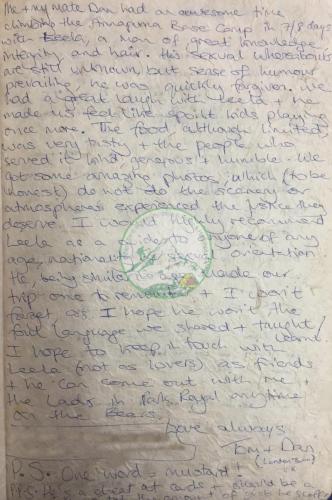 Me + my mate Dan had an awesome time
climbing the Annapurna Base Camp in 7/8 days
with Leela, a man of great knowledge
integrity and hair. His sexual whereabouts
are still unknown but sense of humour
prevailing, he was quickly forgiven. We
had a great laugh with Leela + he
made us feel like spoilt kids playing
once more. The food, although limited
was very tasty + the people who
served it kind, generous + humble. We
got some amazing photos, which (to be
honest) do not do the scenery or
atmospheres experienced the justice they
deserve. I would highly recommend
Leela as a guide to anyone of any
age, nationality or orientation.
He, being made our
trip one to remember + I won't
forget as I hope he won't the
foul language we shared + taught/
learnt
I hope to keep in touch with
Leela (not as lovers) as friends
+ he can come out with me +
the Lads in Park Royal anytime
on the Beers.
always
Tom + Dan
P.S. One word - mustard!
P.S. a cheat at cards + should be